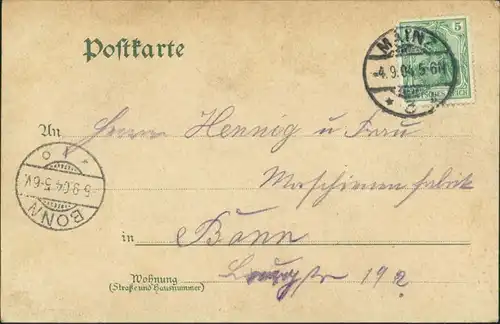 Postkarte
5
MAINZ
4.9.04.5-6N
An Herrn Hennig u Frau
Maschinenfabrik
BONN
5.9.04.5-6V.
in Bonn
Wohnung
(Straße und Hausnummer)
192